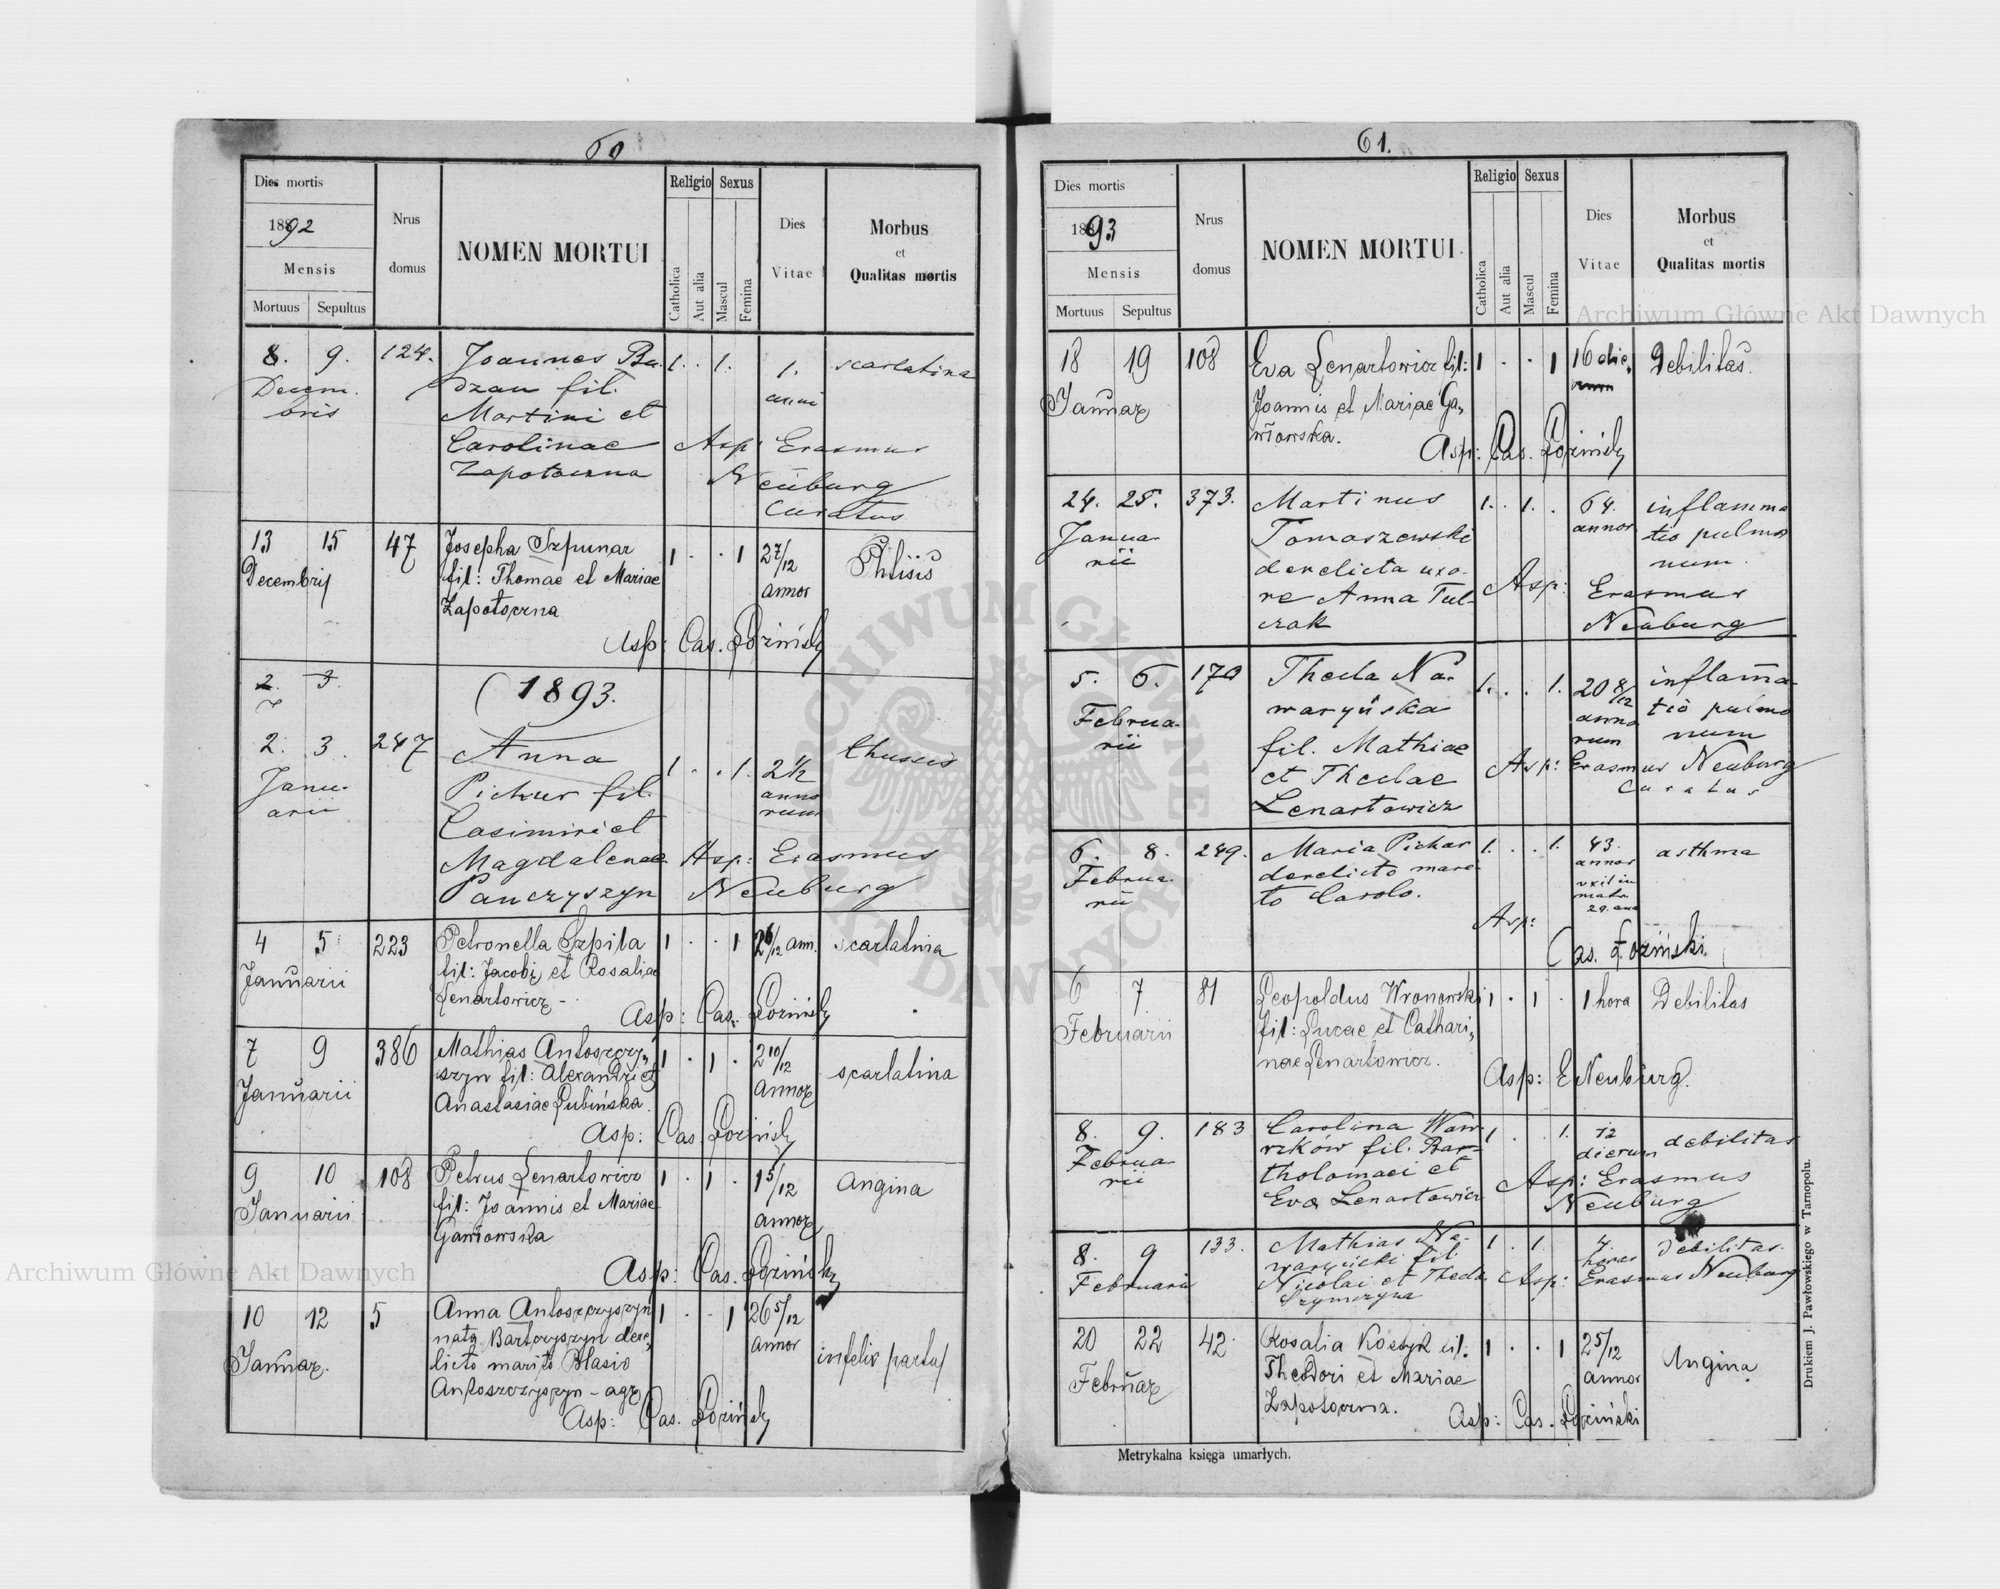 60
Dies mortis
1892
Mensis
Mortuus Sepultus
Nrus
domus
NOMEN MORTUI
Religio Sexus
Catholica
Aut alia
Mascul
Femina
Dies
Vitae
Morbus
et
Qualitas mortis
8. 9. 124. Joannes Bu- 1. . 1. 1. scarlatina
Decem- dzan fil. anni
bris Martini et
Carolinae Asp: Erasmus
Zapotoczna Neüburg
Curatus
13 15 47 Josepha Szpunar 1 . . 1 2 7/12 Phtisis
Decembrij fil: Thomae et Mariae annor
Zapotoczna
Asp: Cas. Łoziński
2. 3.
1893.
2. 3. 247 Anna 1 . . 1. 2½ thussis
Janu- Pichur fil. anno
arii Casimiri et rum
Magdalenae Asp: Erasmus
Panczyszyn Neuburg
4 5 223 Petronella Szpila 1 . . 1 2 6/12 ann. scarlatina
Januarii fil: Jacobi et Rosaliae
Lenartowicz -
Asp: Cas. Łoziński
7 9 386 Mathias Antoszczy, 1 . 1 . 2 10/12 scarlatina
Januarii szyn fil: Alexandri et annor
Anastasiae Łubińska.
Asp: Cas. Łoziński
9 10 108 Petrus Lenartowicz 1 . 1 . 1 5/12 Angina
Januarii fil: Joannis et Mariae annor
Gawłowska
Asp: Cas. Łoziński
10 12 5 Anna Antoszczyszyn 1 . . 1 26 5/12
Januar. nata Bartczyszyn dere, annor infelix partus
licto marito Blasio
Antoszczyszyn - agr
Asp: Cas. Łoziński
61.
Dies mortis
1893
Mensis
Mortuus Sepultus
Nrus
domus
NOMEN MORTUI
Religio Sexus
Catholica
Aut alia
Mascul
Femina
Dies
Vitae
Morbus
et
Qualitas mortis
18 19 108 Eva Lenartowicz fil: 1 . . 1 16 die, Debilitas.
Januar Joannis et Mariae Ga, rum
włowska.
Asp: Cas. Łoziński
24. 25. 373. Martinus 1. . 1. . 64. inflamma
Janua- Tomaszewski annor tio pulmo
rii derelicta uxo- num.
re Anna Tul- Asp: Erasmus
czak Neuburg
5. 6. 170 Thecla Na- 1. . . 1. 20 8/12 inflama-
Februa- waryńska anno tio pulmo
rii fil. Mathiae rum num
et Theclae Asp: Erasmus Neuburg
Lenartowicz Curatus
6. 8. 249. Maria Pichur 1. . . 1. 43. asthma
Februa- derelicto mari- annor
rii to Carolo. vixit in
matr.
29. ann
Asp:
Cas. Łoziński.
6 7 81 Leopoldus Wronowski 1 . 1 . 1 hora Debilitas
Februarii fil: Lucae et Cathari,
nae Lenartowicz.
Asp: E Neuburg.
8. 9. 183 Carolina Waw- 1 . . 1. 12 debilitas
Februa- rzków fil. Bar- dierum
rii tholomaei et Asp: Erasmus
Eva Lenartowicz Neuburg
8. 9 133. Mathias Na- 1 . 1 . 4 debilitas.
Februarii warycki fil. horas
Nicolai et Thecla Asp: Erasmus Neuburg
Szymczyna
20 22 42. Rosalia Kostyk fil. 1 . . 1 2 5/12 Angina
Februar Theodori et Mariae annor
Zapotoczna. Asp: Cas. Łoziński
Metrykalna księga umarłych.
Drukiem J. Pawłowskiego w Tarnopolu.
Archiwum Główne Akt Dawnych
Archiwum Główne Akt Dawnych
ARCHIWUM GŁÓWNE AKT DAWNYCH